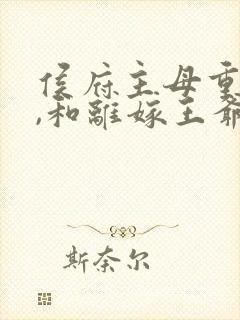 侯府主母重
,和离嫁王爷
斯奈尔